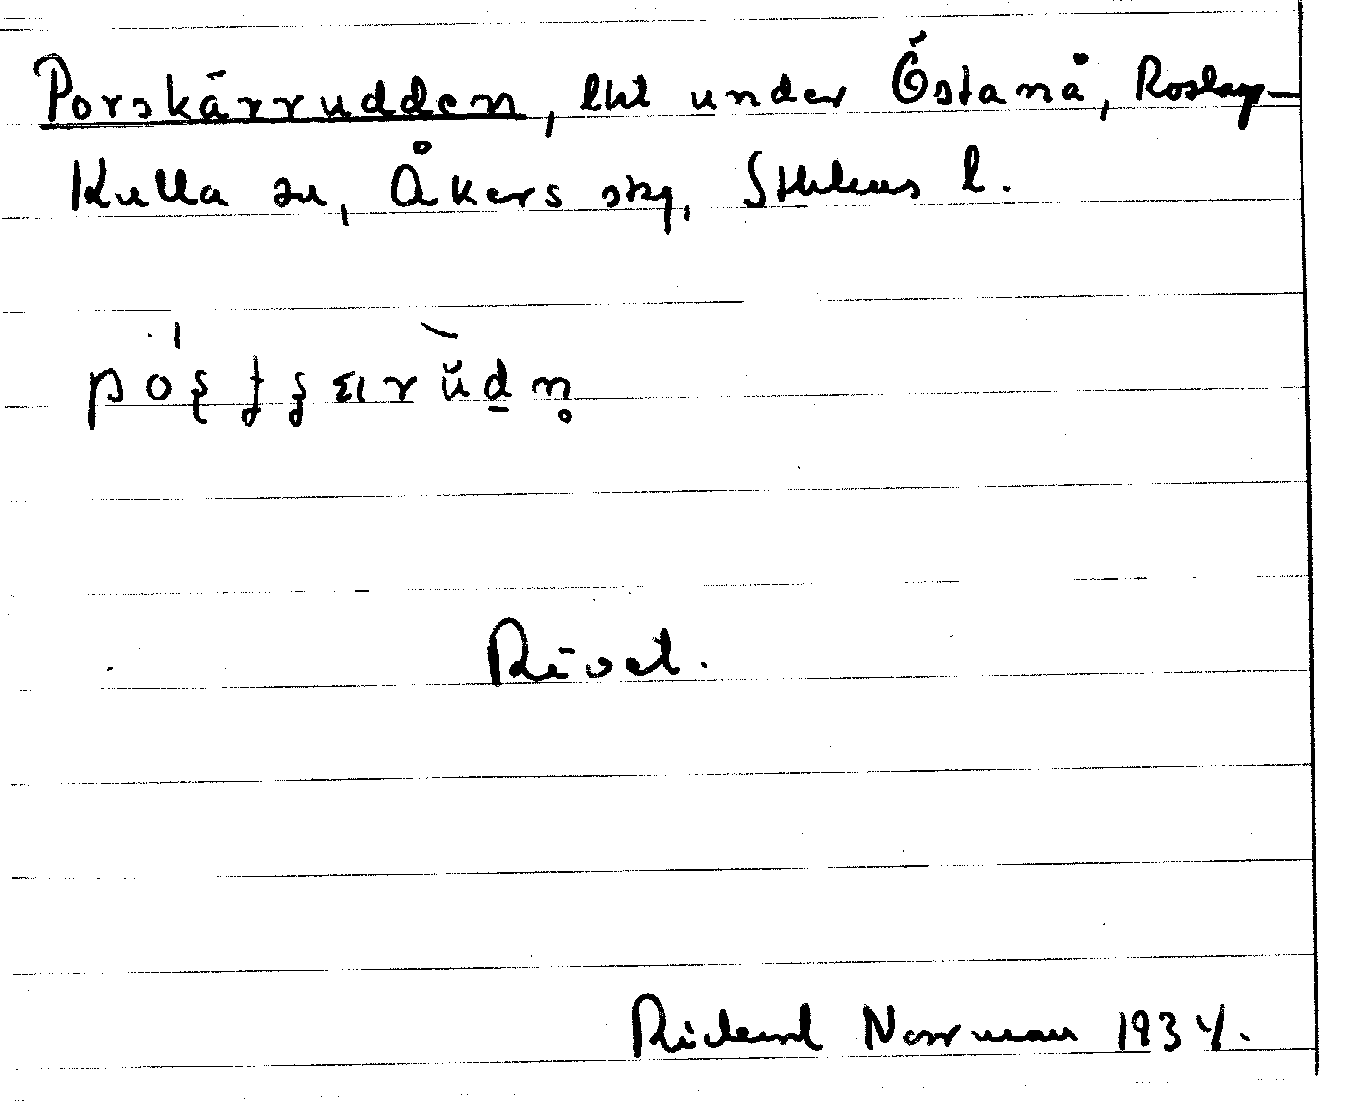 Porskärrudden, lht under Östanå, Roslags-
Kulla sn, Åkers skg, Sthlms l.
Rivet.
Rickard Norrman 1934.